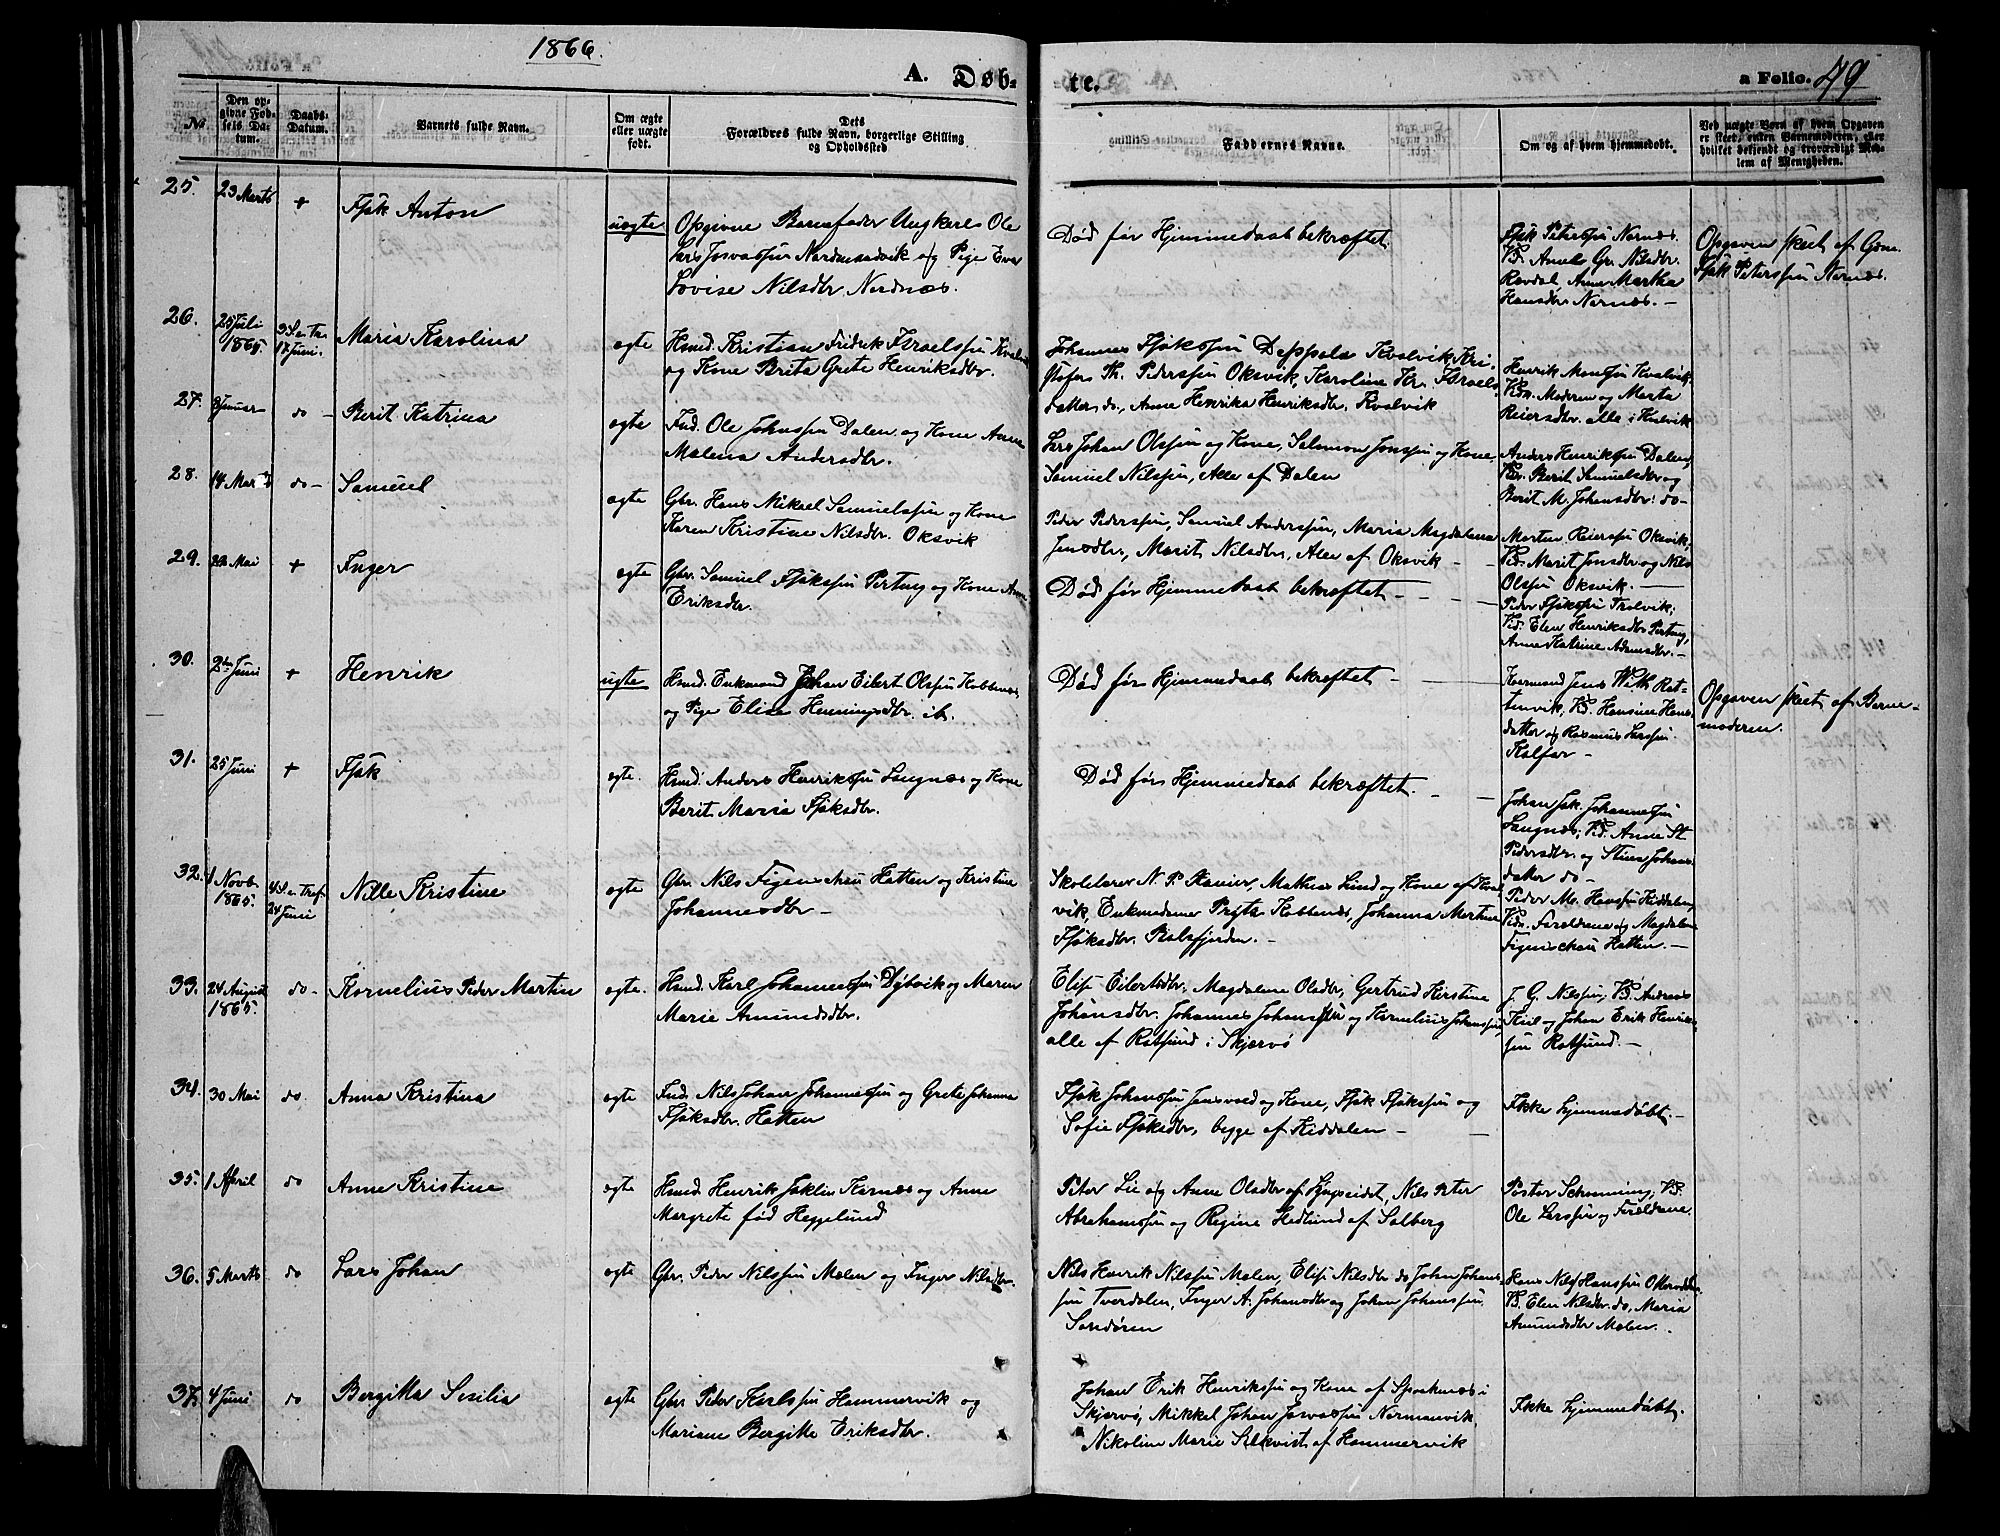 1866.
A. Døb-
te.
a Folio. 49
No.
Den op-
givne Fød-
sels Da-
tum.
Daabs-
Datum.
Barnets fulde Navn.
Om ægte
eller uægte
født.
Dets
Forældres fulde Navn, borgerlige Stilling
og Opholdssted
Faddernes Navne.
Om og af hvem hjemmedøbt.
Ved uægte Børn af hvem Opgaven
er skeet, enten Barnemoderen, eller
hvilket bekjendt og troværdigt Med-
lem af Menigheden.
25. 23 Marts + Isak Anton uægte
Opgivne Barnefader Ungkarl Ole
Lars Josvassøn Nordmandvik og Pige Eva
Lovise Nilsdtr Nordnæs.
Død før Hjemmedaab bekræftet
Isak Peterssøn Nornæs.
Vd. Anneles Gr. Nilsdtr.
Rovdal, Anne Martha
Hansdtr Nornæs. -
Opgaven skeet af Gbm.
Isak Peterssøn Nornæs.
26. 25 Juli 1865. 3 S. e. Tr. 17 Juni. Maria Karolina ægte
Hmd. Kristian Fridrik Israelssøn Kvalvik
og Kone Brita Grete Henriksdtr.
Johannes Isakssøn Deppala Kvalvik, Kri-
stofer Th. Pederssøn Oksvik, Karoline Kr. Israels
datter do., Anne Henrika Henriksdtr, Kvalvik
Henrik Monssøn Kvalvik,
Vdn. Moderen og Marta
Reiersdtr. alle i Kvalvik
27. 8 Januar do - Berit Katrina ægte
Ind. Ole Johnssøn Dalen og Kone Anne
Malena Andersdtr.
Lars Johan Olssøn og Kone, Salomon Jonssøn og Kone,
Samuel Nilssøn, Alle af Dalen
Anders Henrikssøn Dalen,
Vdr. Berit Samuelsdtr og
Berit M. Johansdtr. do -
28. 14 Marts do - Samuel ægte
Gbr. Hans Mikael Samuelssøn og Kone
Karen Kristine Nilsdtr. Oksvik
Peder Pederssøn, Samuel Anderssøn, Maria Magdalena
Jensdtr, Marit Nilsdtr, Alle af Oksvik -
Morten Reierssøn Oksvik,
Vd. Marit Jonsdtr og Nils
Olssøn Oksvik.
29. 22 Mai + Inger ægte
Gbr. Samuel Isakssøn Pertung og Kone Anne
Eriksdtr.
Død før Hjemmedaab bekræftet -
Peder Isakssøn Trolvik;
Vid. Elen Henriksdtr Pertung,
Anne Katrine Adamsdtr. -
30. 2den Juni + Henrik uægte
Hmd. Enkemand Johan Eilert Olssøn Kobbenæs
og Pige Elise Henningsdtr. ib.
Død før Hjemmedaab bekræftet -
Kvenmand Jens With Rot-
tenvik, Vd. Hansine Hans-
datter og Rasmus Larssøn
Kalfar -
Opgaven skeet af Barne-
moderen.
31. 25 Juni + Isak ægte.
Hmd. Anders Henrikssøn Langnæs og Kone
Berit Maria Isaksdtr.
Død før Hjemmedaab bekræftet. -
Johan Isak Johannessøn
Langnæs; Vid. Anne St
Pedersdtr. og Stina Johans-
datter do -
32. 4 Novb. 1865. 4 S. e. Tref. 24 Juni Nille Kristine ægte
Gbr. Nils Figenschau Hatten og Kristine
Johannesdtr -
Skolelærer N. P. Hanier, Mathias Lund og Kone af Kval
vik, Enkemadame Prytz Kobbenæs, Johanna Martine
Isaksdtr. Balsfjorden. -
Peder Mo. Hanssøn Kiddalen,
Vidn. Forældrene og Magdalena
Figenschau Hatten. -
33. 24 August 1865. do - Kornelius Peder Martin ægte.
Hmd. Karl Johannessøn Dybvik og Maren
Marie Amundsdtr.
Elise Eilertsdtr, Magdalene Olsdtr, Gertrud Kirstine
Johansdtr. Johannes Johanssøn og Kornelius Johanssøn
alle af Rotsund i Skjervø
J. G. Nilssøn, Vd. Andreas
Kiil og Johan Erik Henrik-
søn Rotsund. -
34. 30 Mai do. Anna Kristina ægte
Ind. Nils Johan Johannessøn og Grete Johanna
Isaksdtr. Hatten
Isak Johanssøn Jensvold og Kone, Isak Isakssøn og
Sofie Isaksdtr, begge af Kiddalen -
Ikke hjemmedøbt. -
35. 1 April do Anne Kristine ægte
Hmd. Henrik Jaklin Karnæs og Anne
Margrete født Heggelund
Peter Lie og Anne Olsdtr af Lyngseidet, Nils Peter
Abrahamssøn og Regine Hedlund af Solberg
Pastor Schrøning, Vd.
Ole Larssøn og Forældrene.
36. 5 Marts do Lars Johan ægte
Gbr. Peder Nilssøn Malen og Inger Nilsdtr.
Nils Henrik Nilssøn Malen, Elise Nilsdtr do, John Johans-
søn Tverdalen, Inger A. Johansdtr og Johan Johanssøn,
Sandøren
Hans Nils Hanssøn Ottersdalen
Vd. Elen Nilsdtr. do, Maria
Amundsdtr Malen.
37. 4 Juni do Bergitta Sesilia ægte
Gbr. Peder Karlssøn Hammervik og
Mariane Bergitte Eriksdtr.
Johan Erik Henrikssøn og Kone af Spaaknæs i
Skjervø, Mikkel Johan Josvassøn Normanvik,
Nikoline Marie Selkvist af Hammervik
Ikke hjemmedøbt.